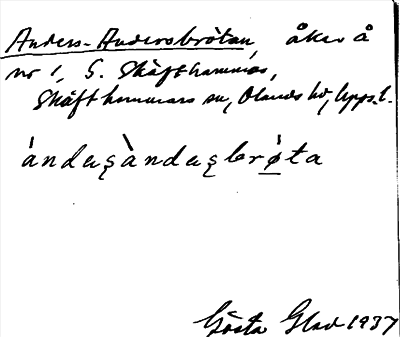 Anders-Andersbrötan, åker å
nr 1, S. Skäfthammar,
Skäfthammars sn, Olands hd, Upps.l.
àndaşàndaşbrø̀ta
Gösta Glad 1937